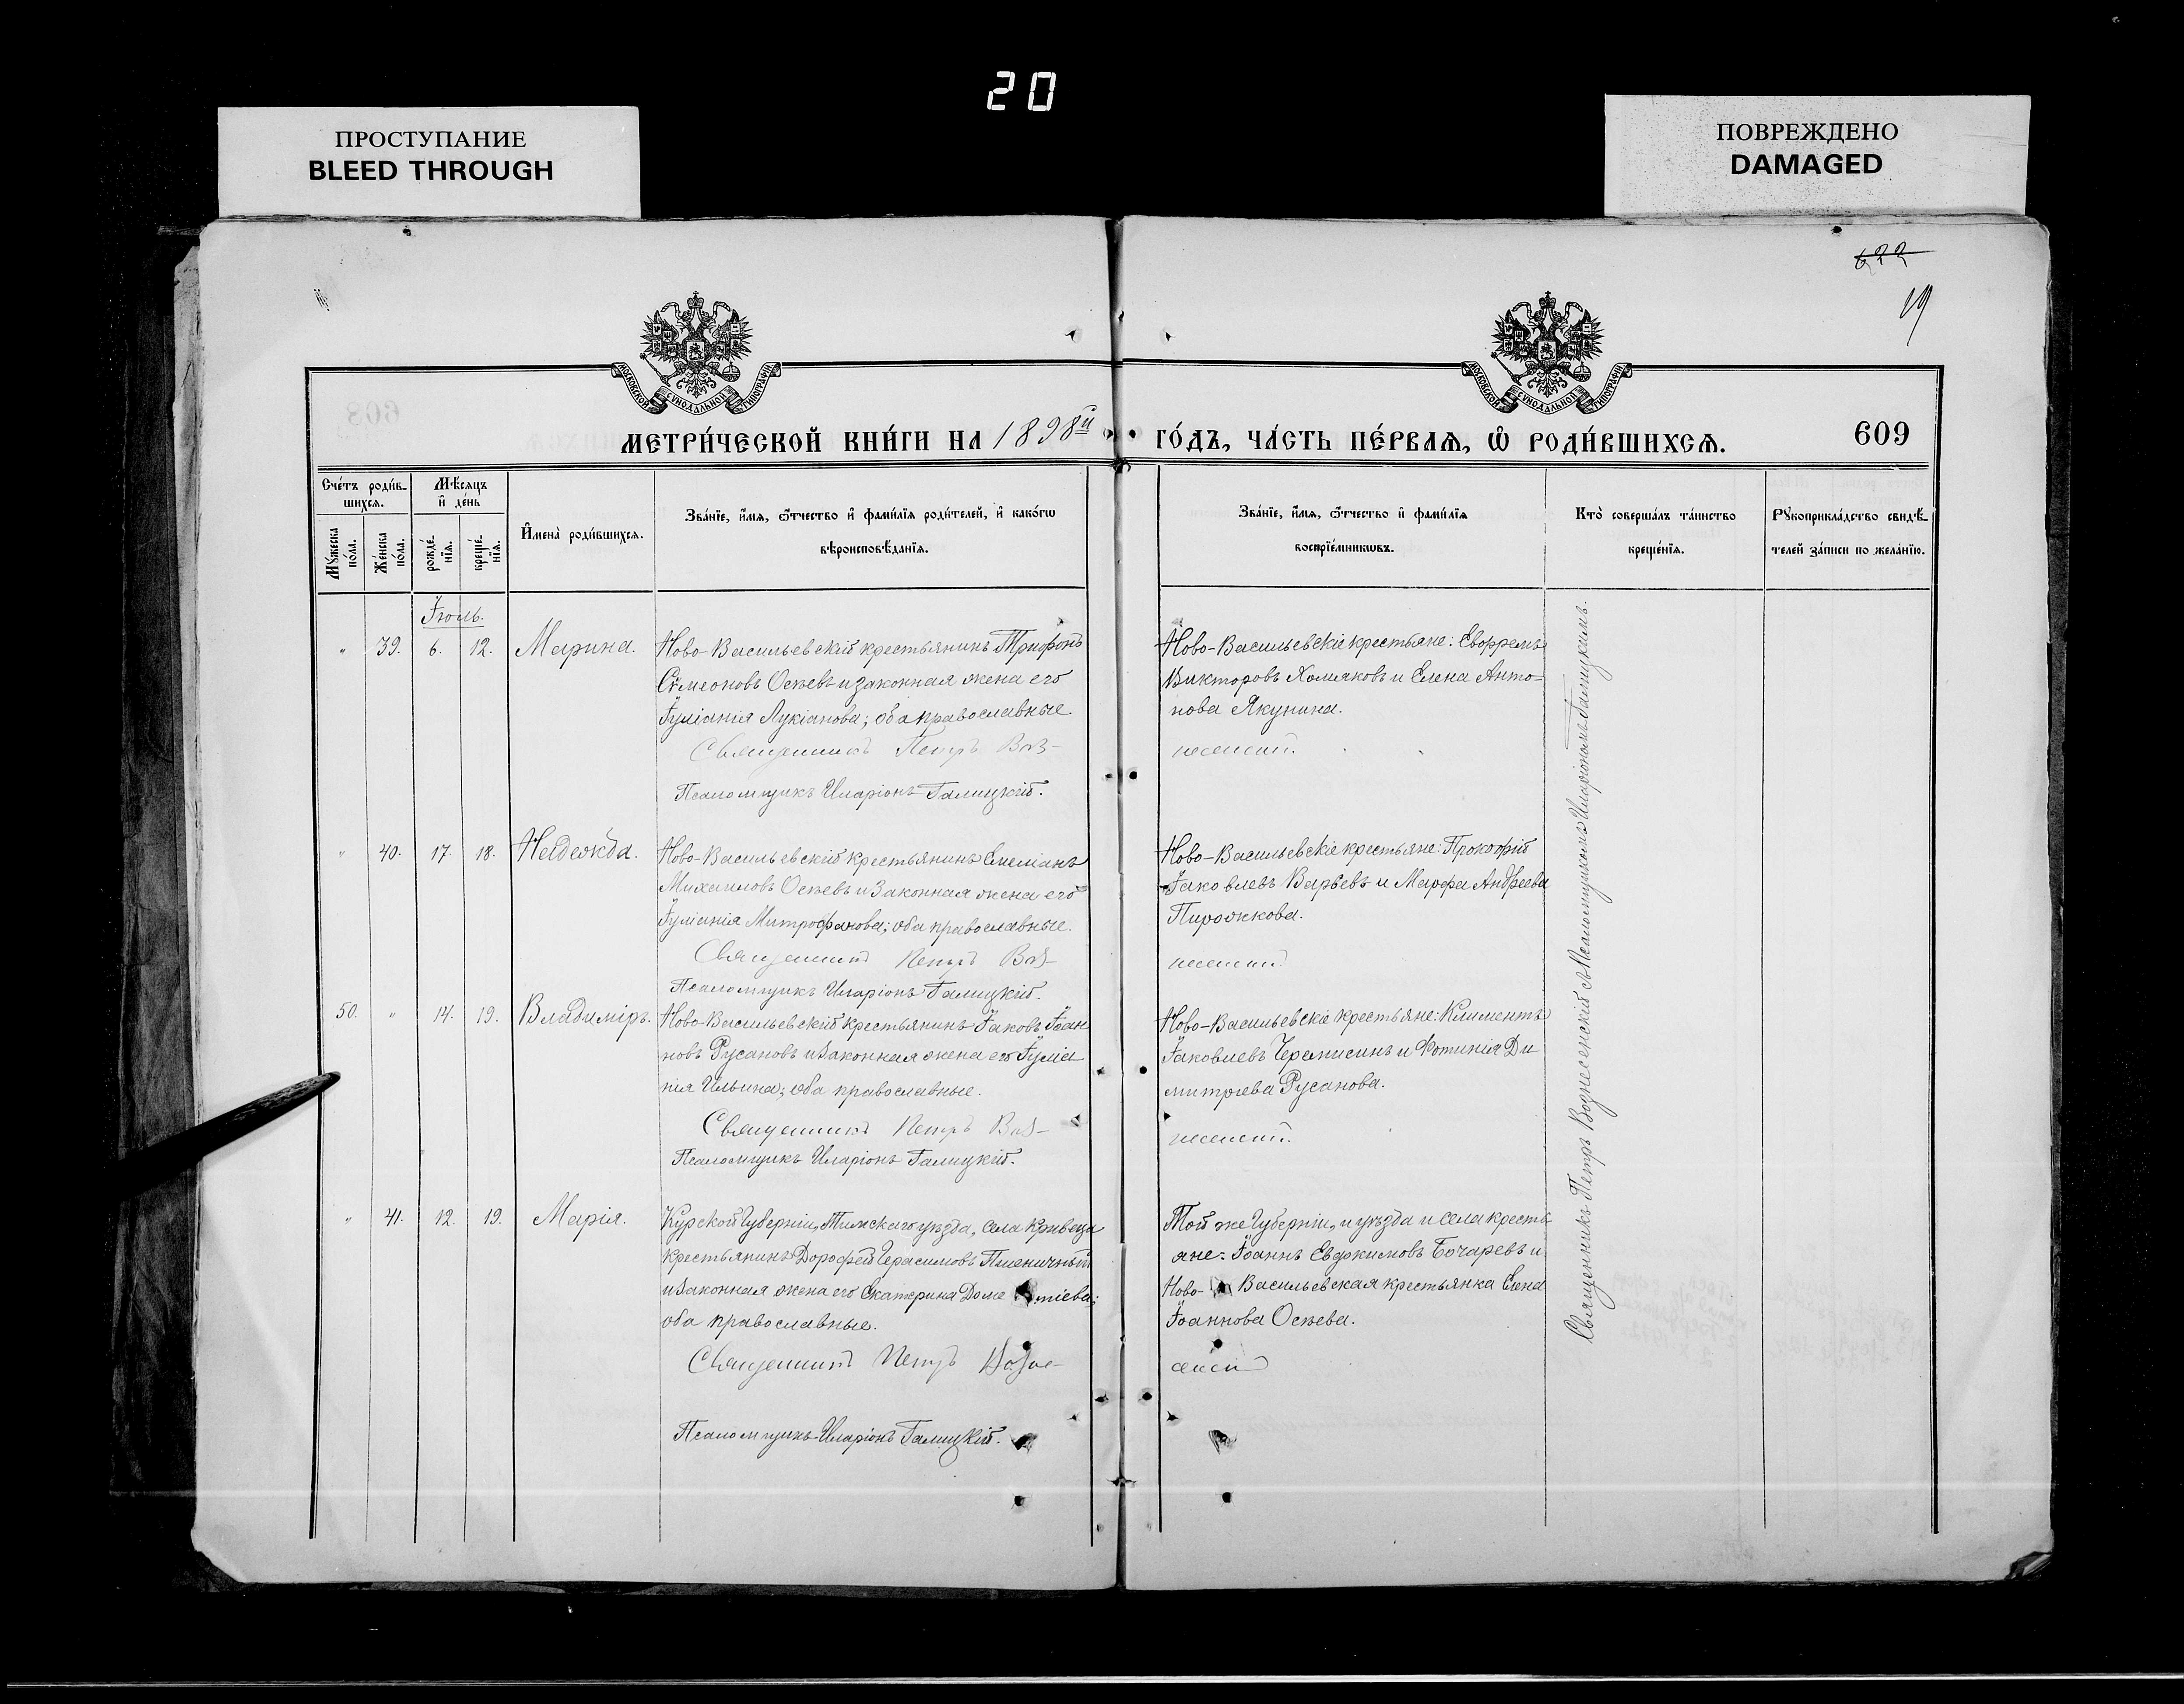 20
ПРОСТУПАНИЕ
BLEED THROUGH
ПОВРЕЖДЕНО
DAMAGED
622
19
МОСКОВСКОЙ СѴНОДАЛЬНОЙ ТИПОГРАФІИ
МОСКОВСКОЙ СѴНОДАЛЬНОЙ ТИПОГРАФІИ
МЕТРИ́ЧЕСКОЙ КНИ́ГИ НА 1898й ГО́ДЪ, ЧА́СТЬ ПЕ́РВАѦ, Ѽ РОДИ́ВШИХСѦ.
609
Сче́тъ роди́в-
шихсѧ.
Мѣ́сѧцъ
и҆ де́нь
Мꙋ́жеска
по́ла.
Же́нска
по́ла.
рожде́-
нїѧ.
креще́-
нїѧ.
И҆мена̀ роди́вшихсѧ.
Зва́нїе, и҆́мѧ, ѻ҆́тчество и҆ фами́лїѧ роди́телей, и҆ како́гѡ
вѣроисповѣ́данїѧ.
Зва́нїе, и҆́мѧ, ѻ҆́тчество и҆ фами́лїѧ
воспрїе́мникѡвъ.
Кто̀ соверша́лъ та́инство
креще́нїѧ.
Рꙋкоприкла́дство свидѣ́-
телей за́писи по жела́нїю.
Іюль.
" 39. 6. 12. Марина.
Ново-Васильевскій крестьянинъ Трифонъ
Сѵмеоновъ Осѣевъ и законная жена его
Іуліанія Лукіанова; оба православные.
Священникъ Петръ Воз-
Псаломщикъ Иларіонъ Галицкій.
Ново-Васильевскіе крестьяне: Евфремъ
Викторовъ Холяковъ и Елена Анто-
нова Якунина.
несенскій.
" 40. 17. 18. Надежда.
Ново-Васильевскій крестьянинъ Емеліанъ
Михаиловъ Осѣевъ и законная жена его
Іуліанія Митрофанова; оба православные.
Священникъ Петръ Воз-
Псаломщикъ Иларіонъ Галицкій.
Ново-Васильевскіе крестьяне: Прокофій
Іаковлевъ Варѣевъ и Марфа Андреева
Пирожкова.
несенскій
50. " 14. 19. Владиміръ.
Ново-Васильевскій крестьянинъ Іаковъ Іоан
новъ Русановъ и законная жена его Іуліа
нія Ильина; оба православные.
Священникъ Петръ Воз-
Псаломщикъ Иларіонъ Галицкій.
Ново-Васильевскіе крестьяне: Климентъ
Іаковлевъ Черемисинъ и Фотинія Ди
митріева Русанова.
несенскій.
" 41. 12. 19. Марія.
Курской губерніи, Тимскаго уѣзда, села Кривеца
крестьянинъ Дорофей Герасимовъ Пшеничный
и законная жена его Екатерина Доме тіева;
оба православные.
Священникъ Петръ Возне-
Псаломщикъ Иларіонъ Галицкій.
Той же губерніи, и уѣзда и села кресть
яне: Іоаннъ Евдокимовъ Бочаревъ и
Ново- Васильевская крестьянка Елена
Іоаннова Осѣева.
сенскій
Священникъ Петръ Вознесенскій съ Псаломщикомъ Иларіономъ Галицкимъ.